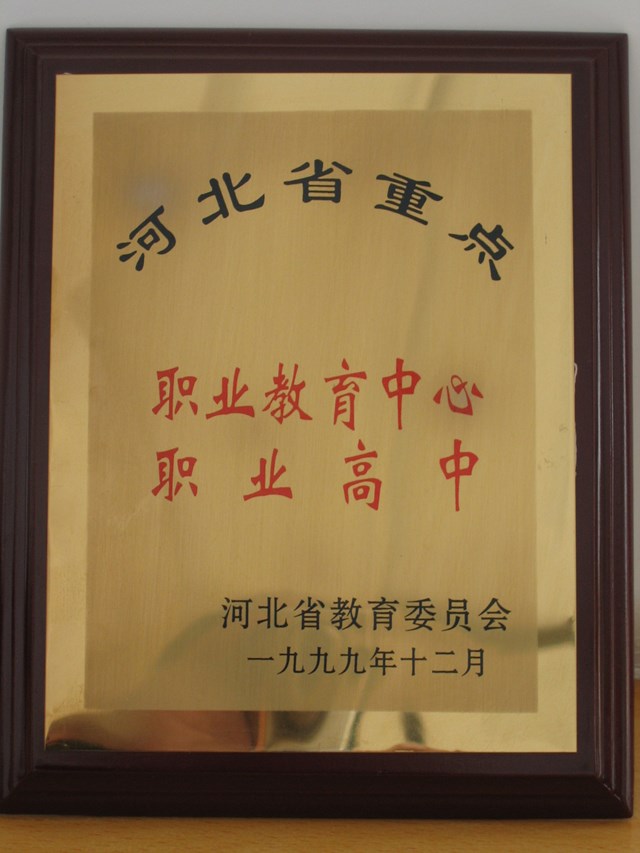 河北省重点
职业教育中心
职业高中
河北省教育委员会
一九九九年十二月